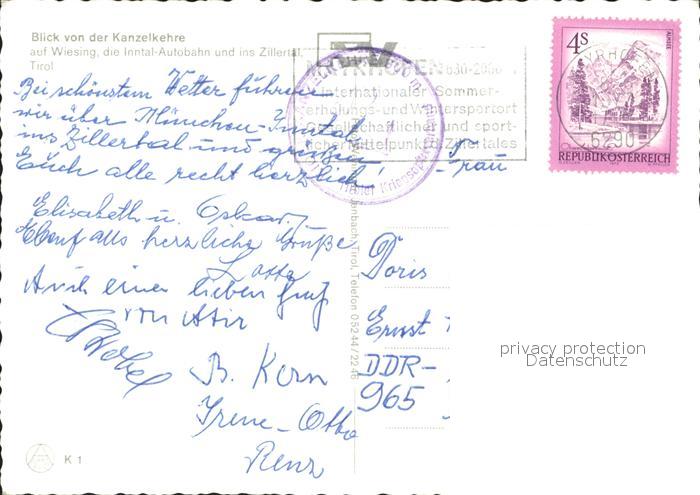 Blick von der Kanzelkehre
auf Wiesing, die Inntal-Autobahn und ins Zillertal,
Tirol
MAYRHOFEN 630-2000
internationaler Sommer-
erholungs- und Wintersportort
gesellschaftlicher und sport-
licher Mittelpunkt d. Zillertales
4S
ALMSEE
6290
REPUBLIK ÖSTERREICH
Bei schönstem Wetter führen
wir über München - Inntal
ins Zillertal und grüßen
Euch alle recht herzlich!
Elisabeth u. Oskar
Ebenfalls herzliche Grüße
Lotte
Auch einen lieben Gruß
von Mir
B. Kern
Irene - Otto
Renz
Frau
Doris
Ernst
DDR-
965
Tirol, Telefon 05244/2246
K 1
privacy protection
Datenschutz